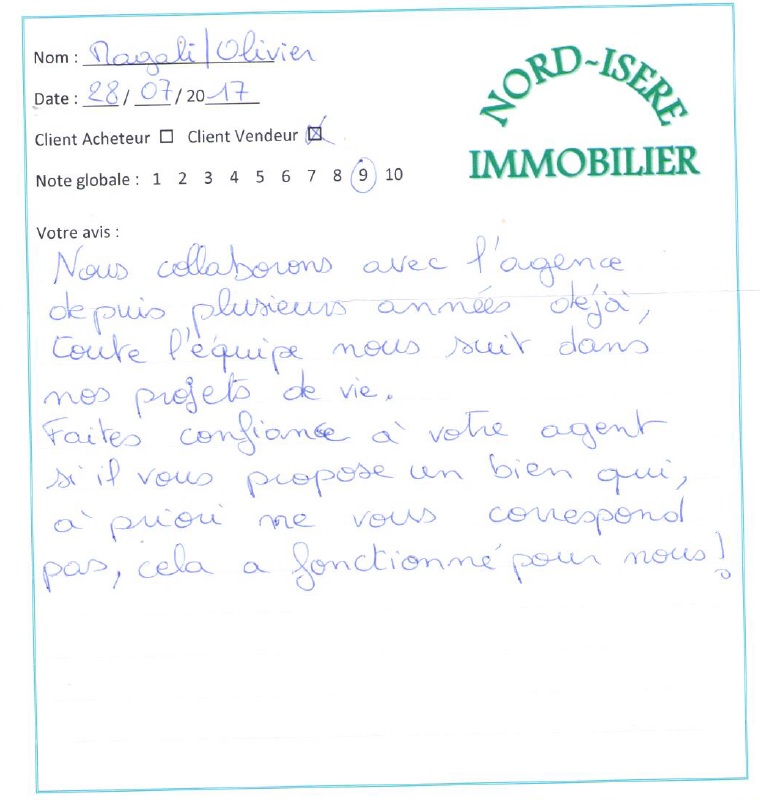 Nom : Magali/Olivier
NORD-ISERE
IMMOBILIER
Date : 28/07/2017
Client Acheteur ☐ Client Vendeur ☒
Note globale : 1 2 3 4 5 6 7 8 9 10
Votre avis :
Nous collaborons avec l'agence
depuis plusieurs années déjà,
toute l'équipe nous suit dans
nos projets de vie.
Faites confiance à votre agent
si il vous propose un bien qui,
à priori ne vous correspond
pas, cela a fonctionné pour nous!